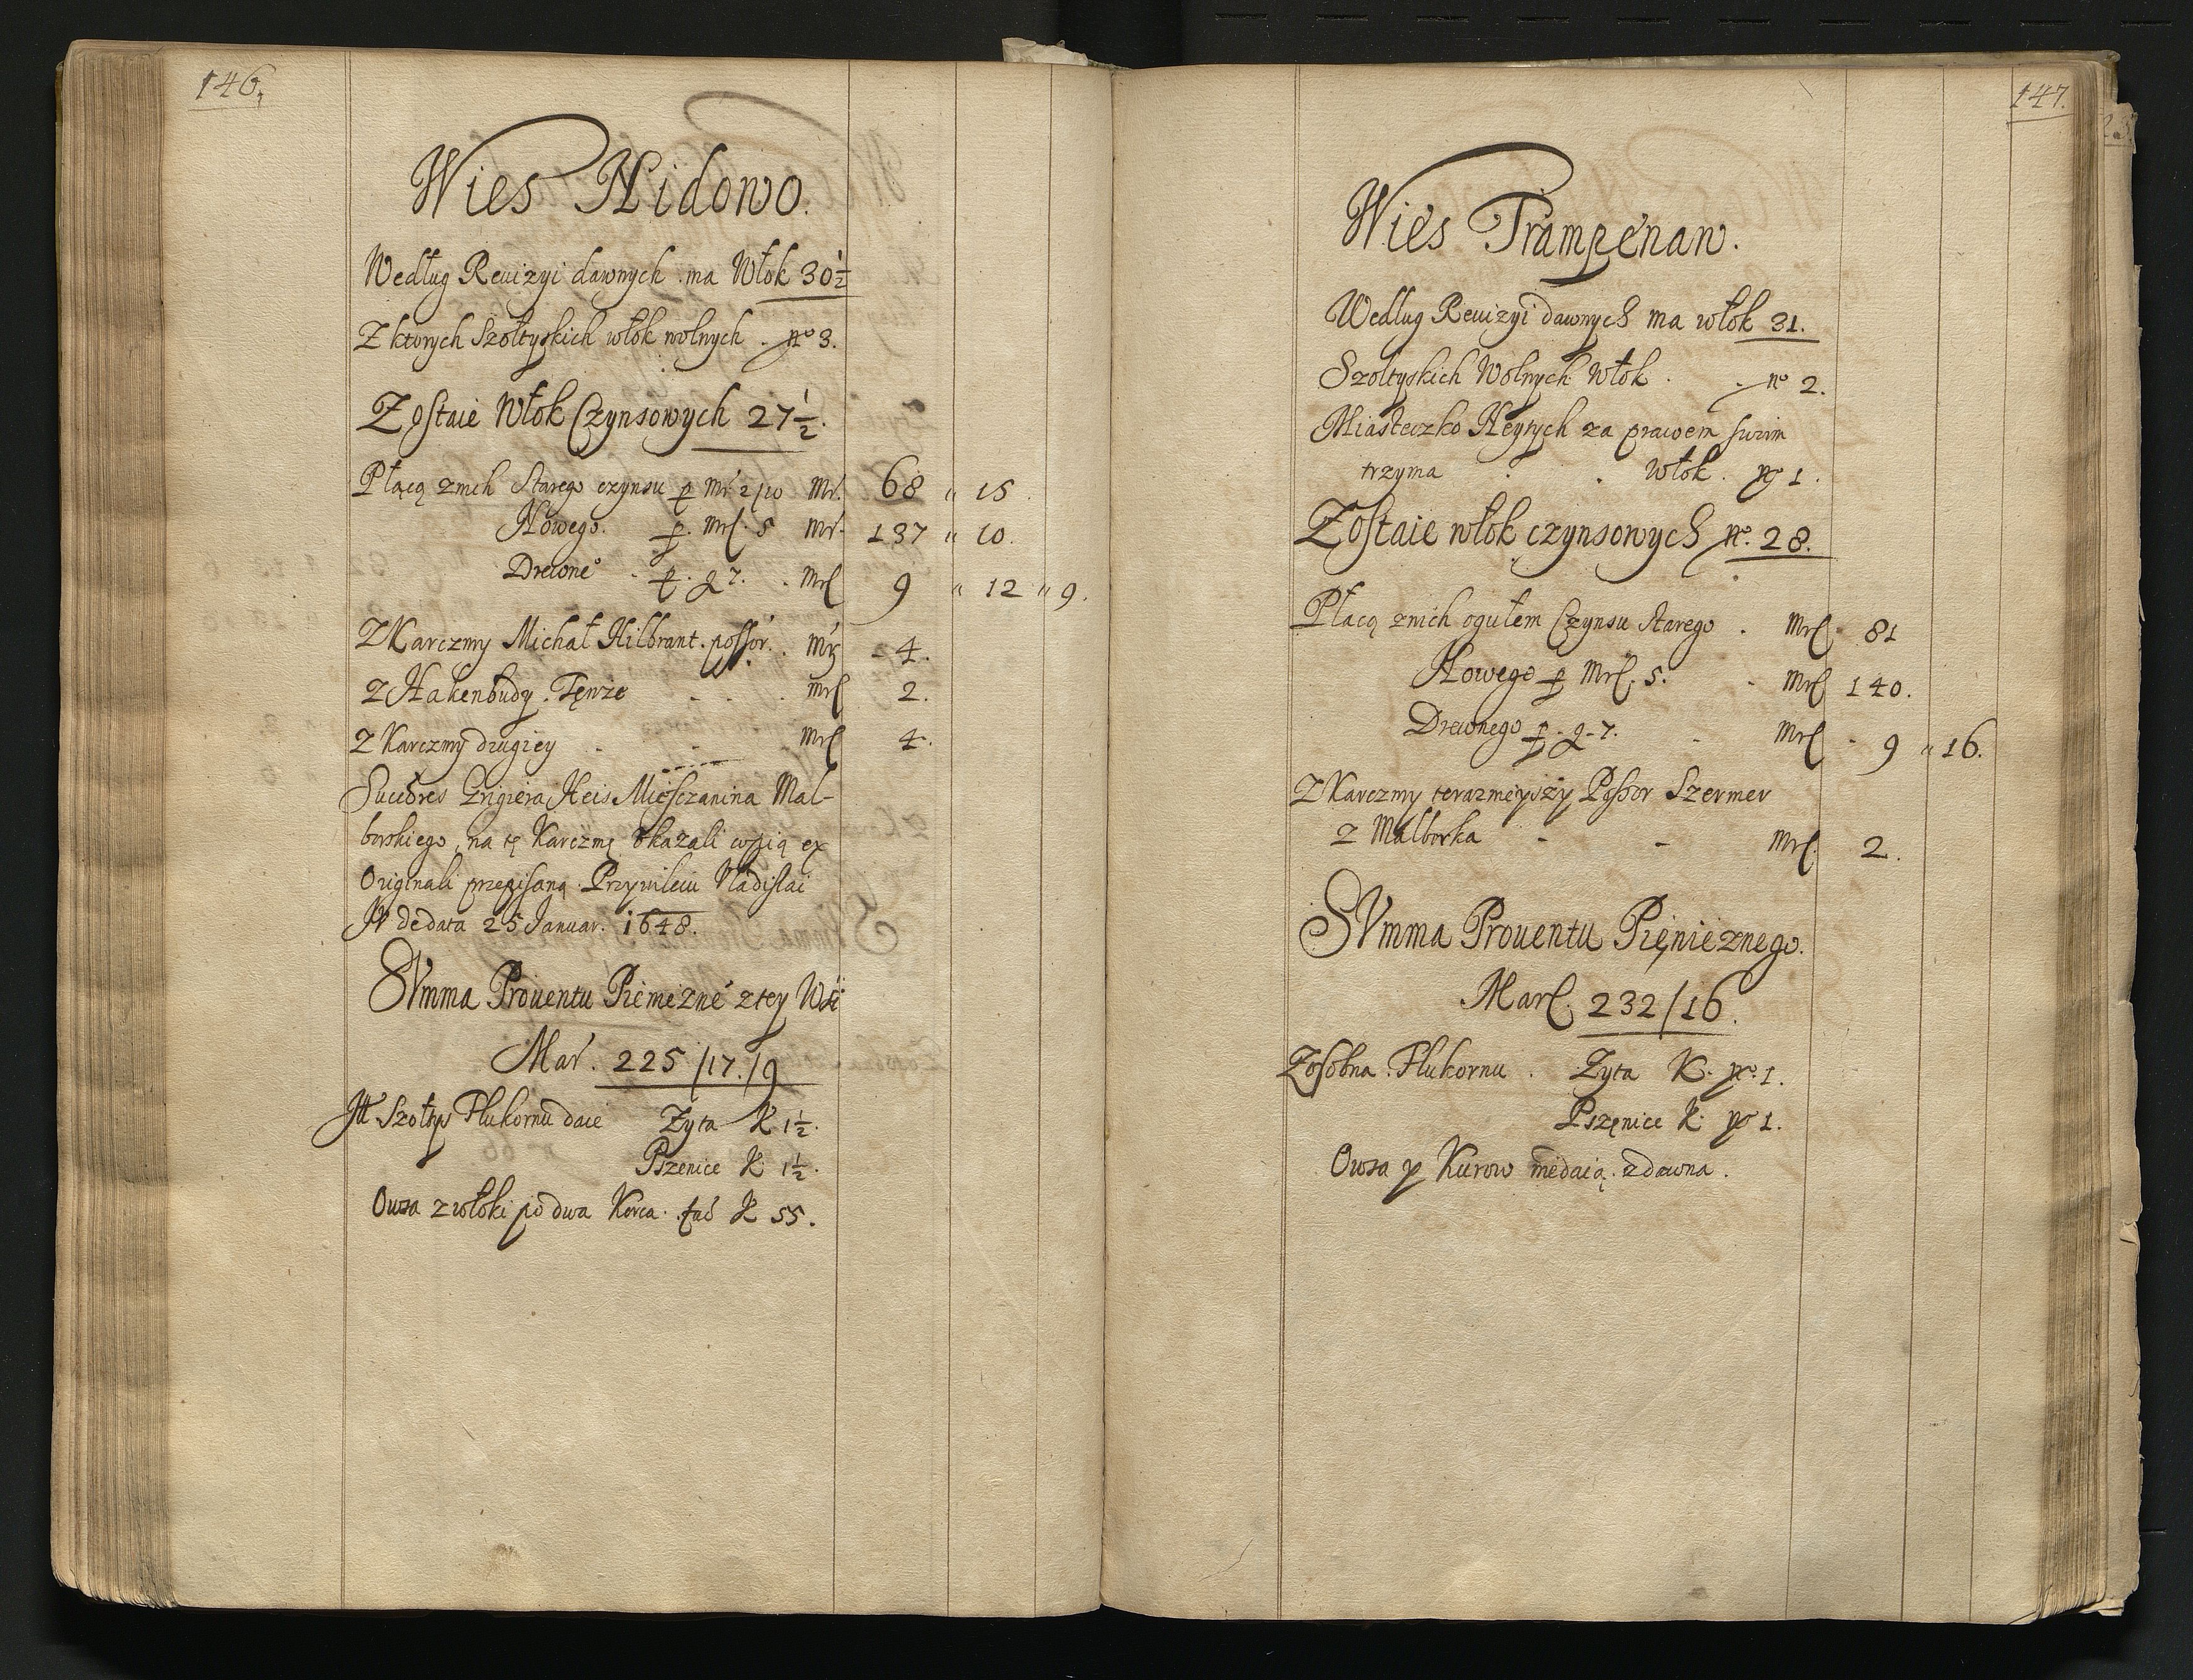 146.
Wies Nidowo.
Według Reuizyi dawnych ma Włok 30 1/2
Z ktorych Szołtyskich włok wolnych . no 3.
Zostaie Włok Czynsowych 27 1/2.
Płacą znich Starego czynsu p Mr 2/10 Mr. 68 " 15.
Nowego. p. Mrl. 5 Mr. 137 " 10.
Drewne° . p. g 7. . Mrl 9 " 12 " 9.
Z Karczmy Michał Hilbrant. possor. . Mrl - 4.
Z Hakenbudy. Tęnze - - . Mrl 2.
Z Karczmy drugiey - - Mrl 4.
Succores Grigiera Heis Miesczanina Mal-
borskiego, na tę Karczmę okazali copią ex
Originali przepisaną Przywileiu Vladislai
IV de data 25 Januar. 1648.
SVmma Prouentu Pienięzne z tey Wsi
Mar. 225/17./9
It Szołtys Plukornu daie Zyta K 1 1/2.
Pszenice K 1 1/2.
Owsa z włoki po dwa Korca. fac K 55.
147.
Wies Trampenaw.
Wedlug Reuizyi dawnych ma włok 31.
Szołtyskich Wolnych Włok . . no 2.
Miasteczko Neytych za prawem swim
trzyma . . Włok. no 1.
Zostaie włok czynsowych no. 28.
Płacą znich ogułem Czynsu starego . Mrl. 81
Nowego p Mrl. 5. - Mrl 140.
Drewnego p - g - 7. - Mrl - 9 " 16.
Z Karczmy terazmeyszy Possor Szermer
z Malborka - - Mrl. 2.
SVmma Prouentu Pięnieznego.
Marl. 232/16.
Zosobna Plukornu . Zyta K. no. 1.
Pszęnice K. no 1.
Owsa y Kurow niedaią zdawna.